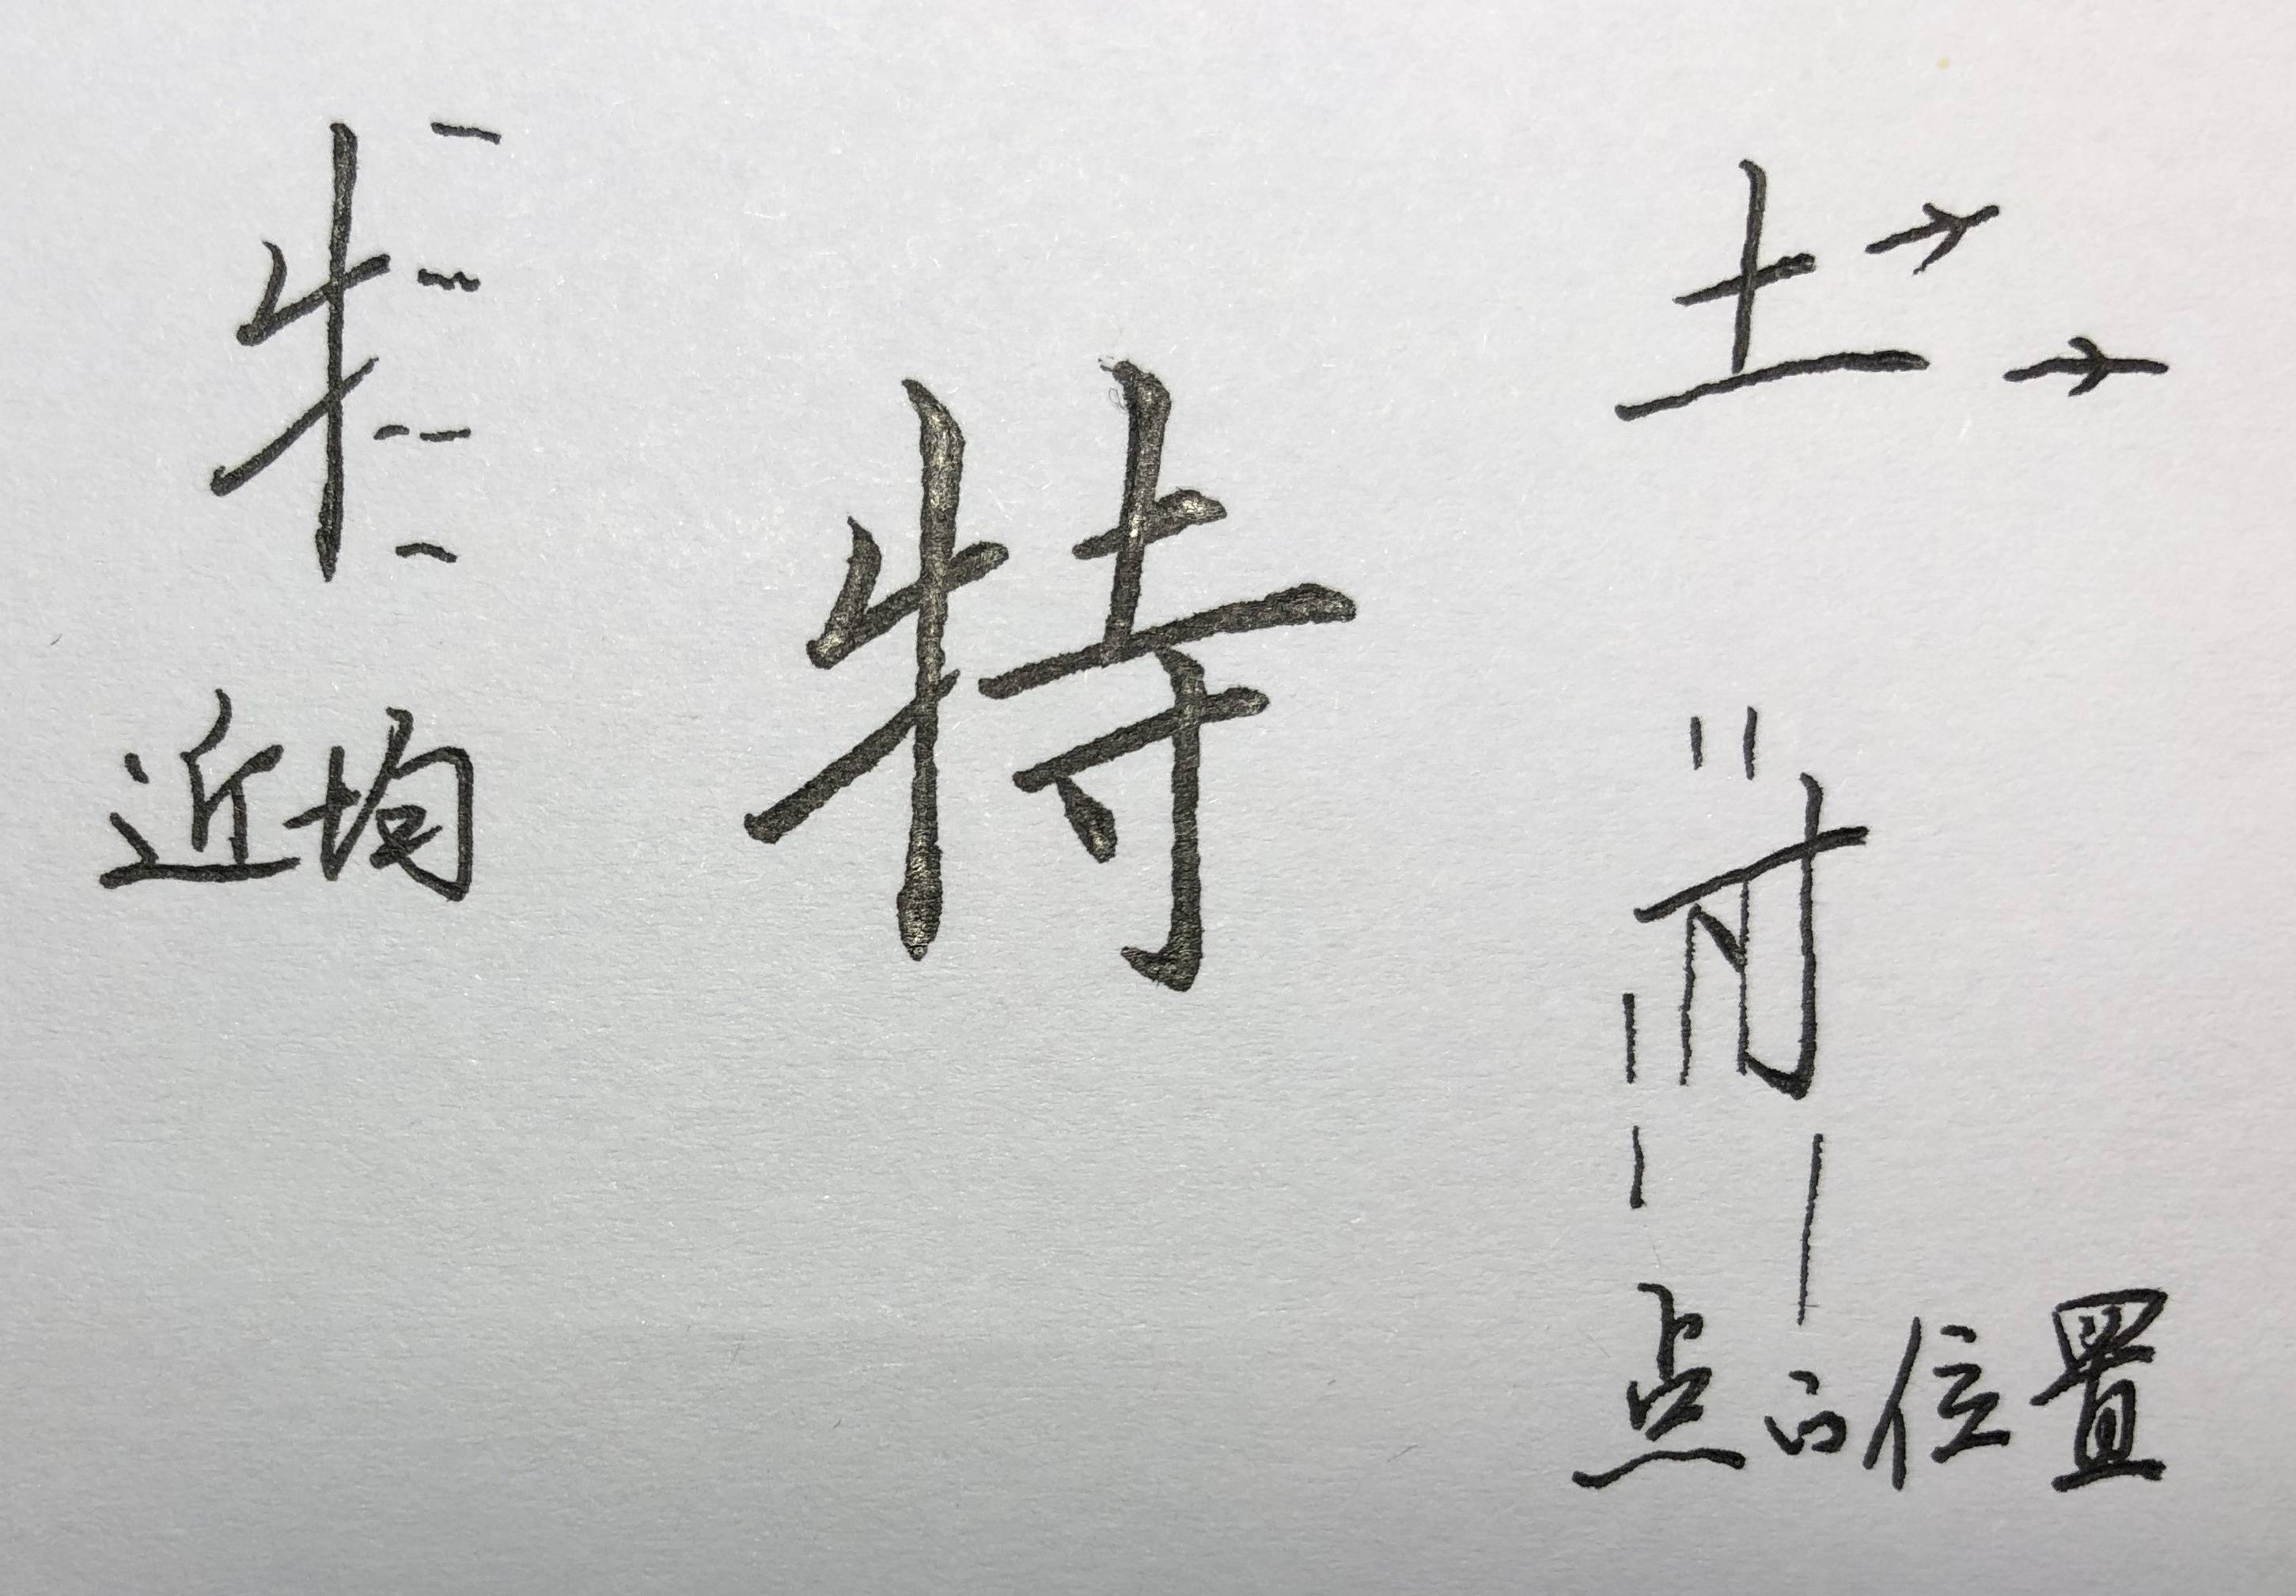 牜
近均
特
土
寸
点的位置